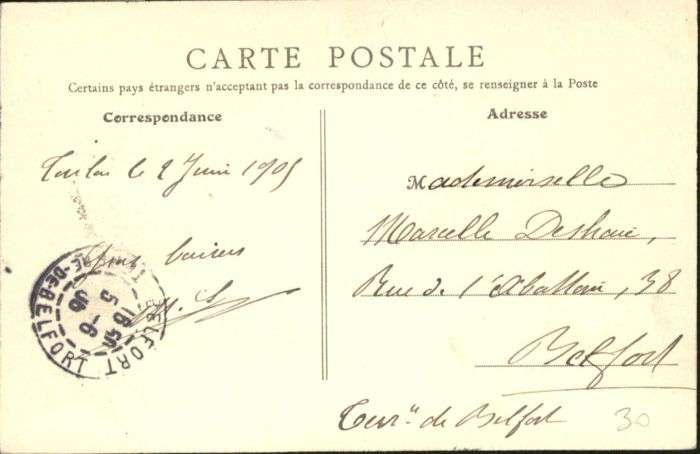 CARTE POSTALE
Certains pays étrangers n'acceptant pas la correspondance de ce côté, se renseigner à la Poste
Correspondance
Adresse
Toulon le 2 Juin 1905
baisers
Mademoiselle
Marcelle Deshaie,
Rue de l'Abattoir, 38
Belfort
Terr.re de Belfort
30
BELFORT
TRE-DE-BELFORT
5 -6